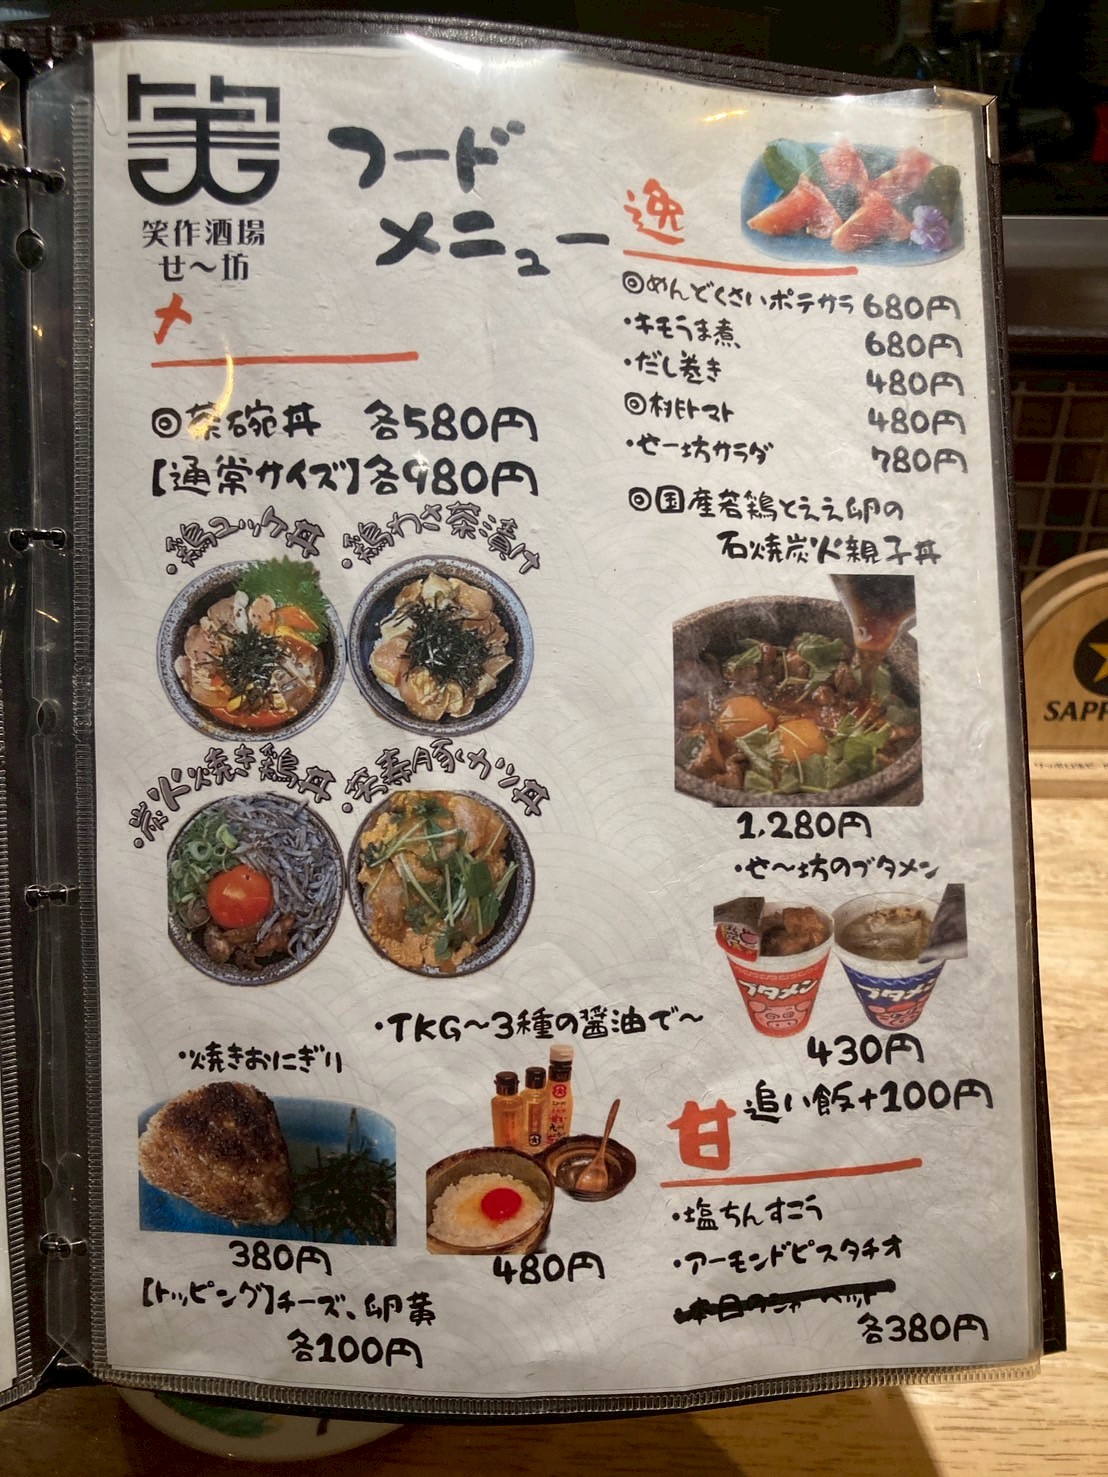 笑
笑作酒場
せ〜坊
フード
メニュー
◎茶碗丼 各580円
【通常サイズ】各980円
・鶏ユッケ丼
・鶏わさ茶漬け
・炭火焼き鶏丼
・芳寿豚カツ丼
・焼きおにぎり
380円
【トッピング】チーズ、卵黄
各100円
・TKG〜3種の醤油で〜
480円
逸
◎めんどくさいポテサラ 680円
・キモうま煮 680円
・だし巻き 480円
◎桃トマト 480円
・せー坊サラダ 780円
◎国産若鶏とええ卵の
石焼炭火親子丼
1,280円
・せ〜坊のブタメン
ブタメン
ブタメン
430円
追い飯+100円
甘
・塩ちんすこう
・アーモンドピスタチオ
本日のシャーベット
各380円
SAPP